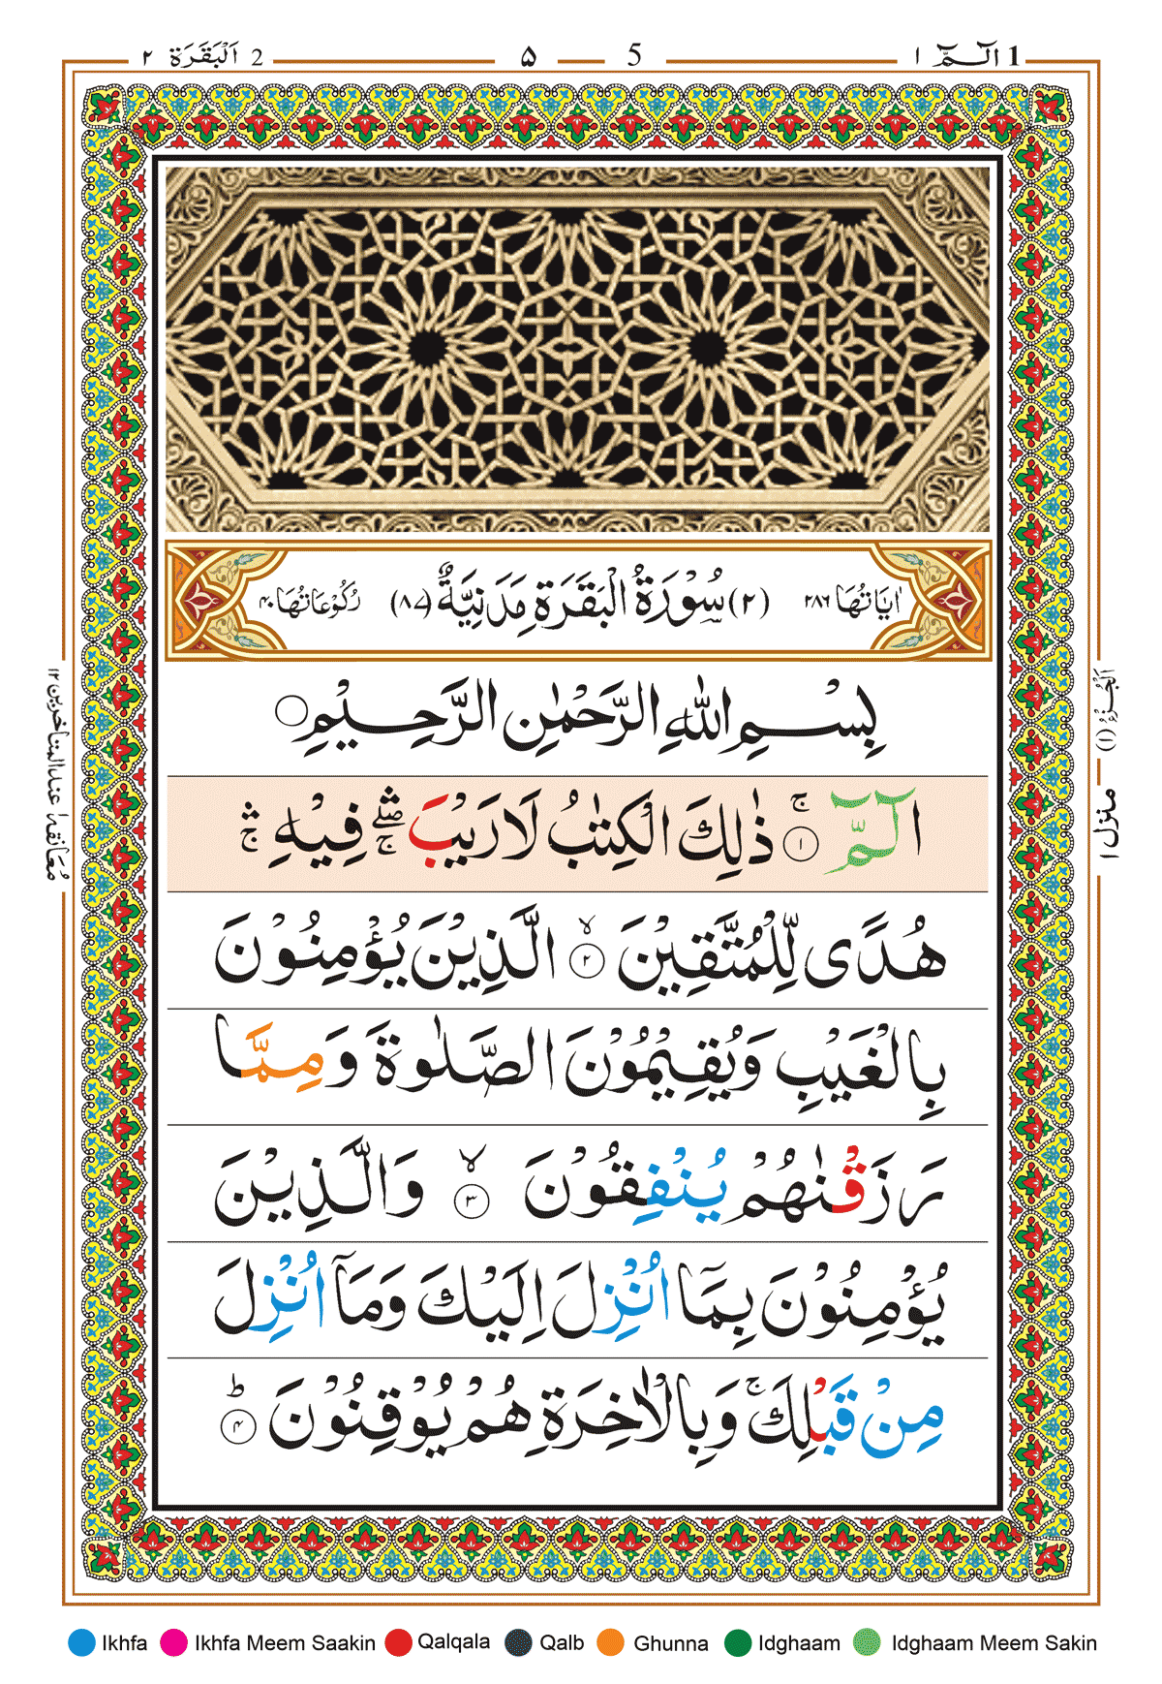 1 الٓـمّٓ ١ 5 ۵ 2 اَلْبَقَرَة ٢
اٰيَاتُهَا ٢٨٦ (٢) سُوْرَةُ الْبَقَرَةِ مَدَنِيَّةٌ (٨٧) رُكُوْعَاتُهَا ٤٠
بِسْمِ اللّٰهِ الرَّحْمٰنِ الرَّحِيْمِ
الٓـمّٓ ۚ ١ ذٰلِكَ الْكِتٰبُ لَا رَيْبَ ۛۖ ۚ فِيْهِ ۛ ۚ
هُدًى لِّلْمُتَّقِيْنَ ۙ ٢ الَّذِيْنَ يُؤْمِنُوْنَ
بِالْغَيْبِ وَيُقِيْمُوْنَ الصَّلٰوةَ وَمِمَّا
رَزَقْنٰهُمْ يُنْفِقُوْنَ ۙ ٣ وَالَّذِيْنَ
يُؤْمِنُوْنَ بِمَآ اُنْزِلَ اِلَيْكَ وَمَآ اُنْزِلَ
مِنْ قَبْلِكَ ۚ وَبِالْاٰخِرَةِ هُمْ يُوْقِنُوْنَ ؕ ۴
اَلْجُزْءُ (١)
منزل ١
مُعَانقه ١ عند المتاخرين ١٢
Ikhfa Ikhfa Meem Saakin Qalqala Qalb Ghunna Idghaam Idghaam Meem Sakin